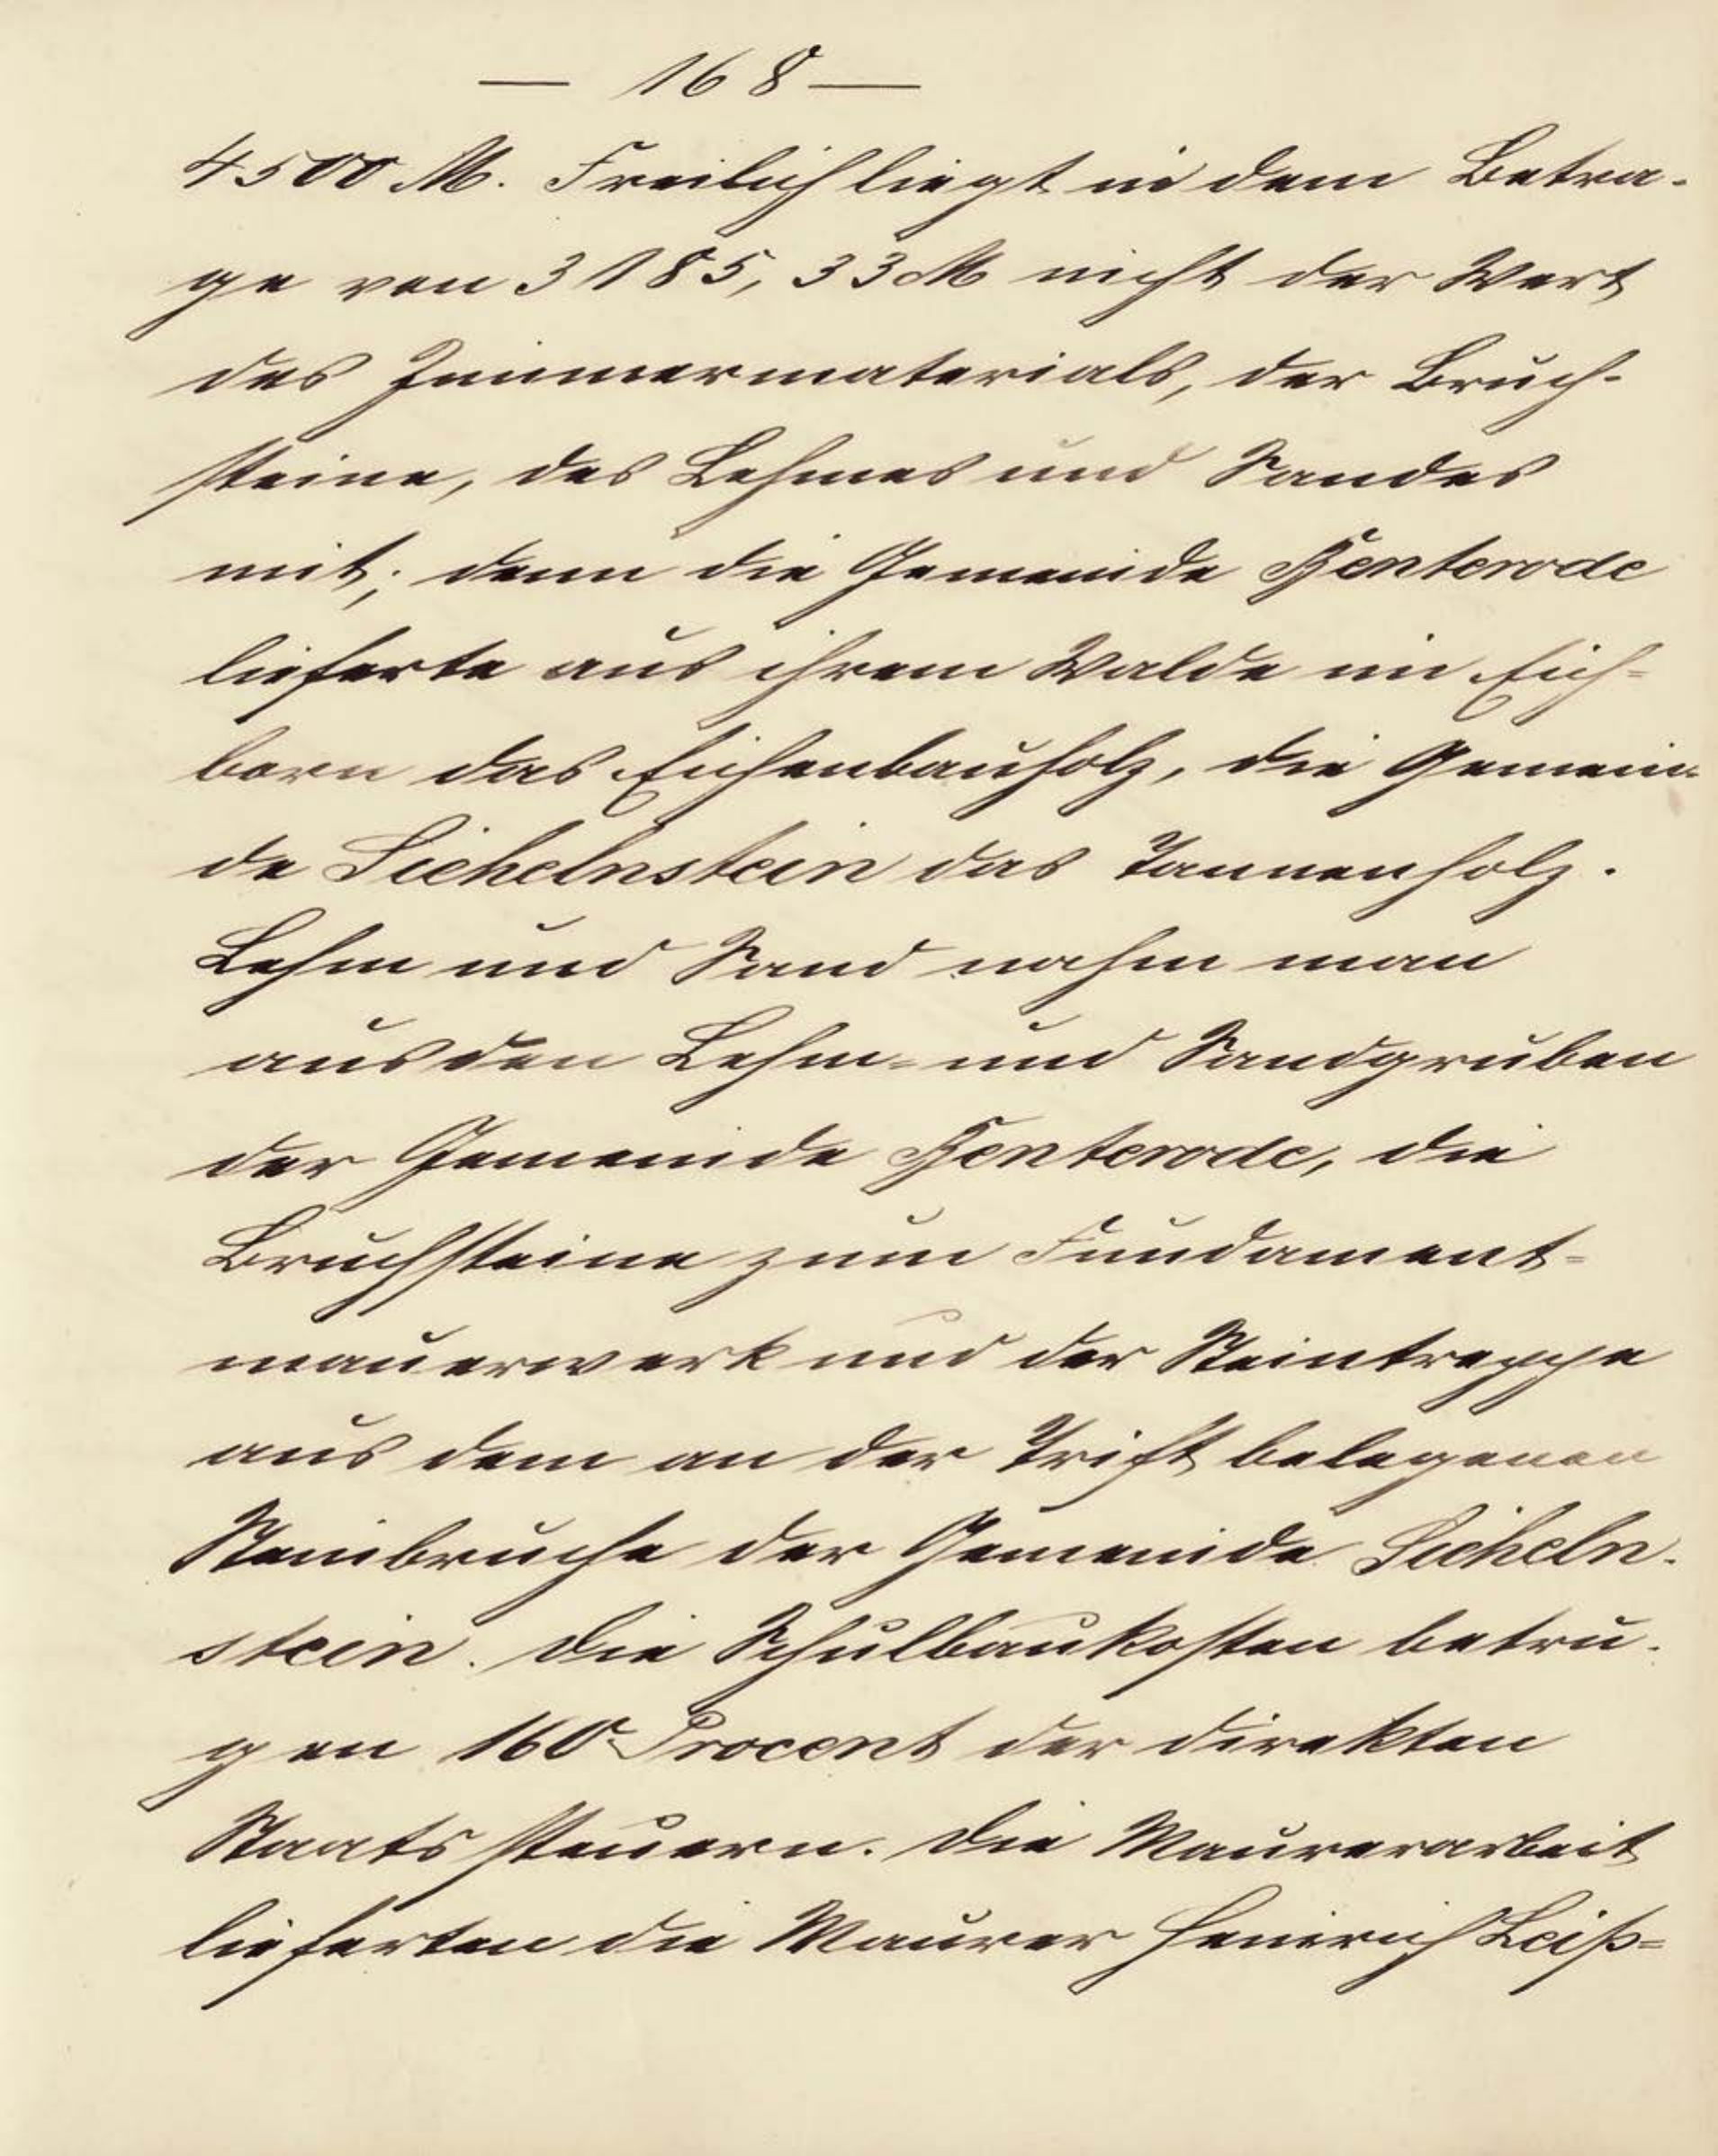 — 168 —
4500 M. Freilich liegt in dem Betra-
ge von 3185,33 M nicht der Wert
des Zimmermaterials, der Bruch-
steine, des Lehmes und Sandes
mit; denn die Gemeinde Benterode
lieferte aus ihrem Walde im Eich=
born das Eichenbauholz, die Gemein-
de Sichelnstein das Tannenholz.
Lehm und Sand nahm man
aus den Lehm= und Sandgruben
der Gemeinde Benterode, die
Bruchsteine zum Fundament=
mauerwerk und der Steintreppe
aus dem an der Trift belegenen
Steinbruche der Gemeinde Sicheln-
stein. Die Schulbaukosten betru-
gen 160 Procent der direkten
Staatssteuern. Die Maurerarbeit
lieferten die Maurer Heinrich Leiß=